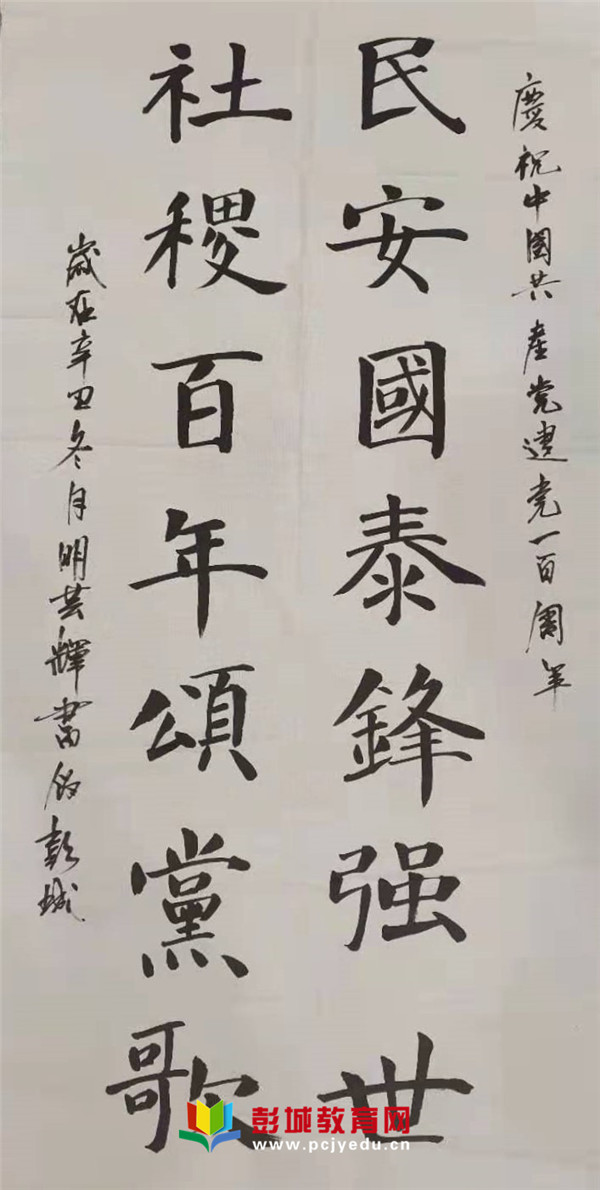 慶祝中國共產党建党一百周年
民安國泰鋒强世
社稷百年頌黨歌
歲在辛丑冬月明芸輝書於彭城
彭城教育网
www.pcjyedu.cn